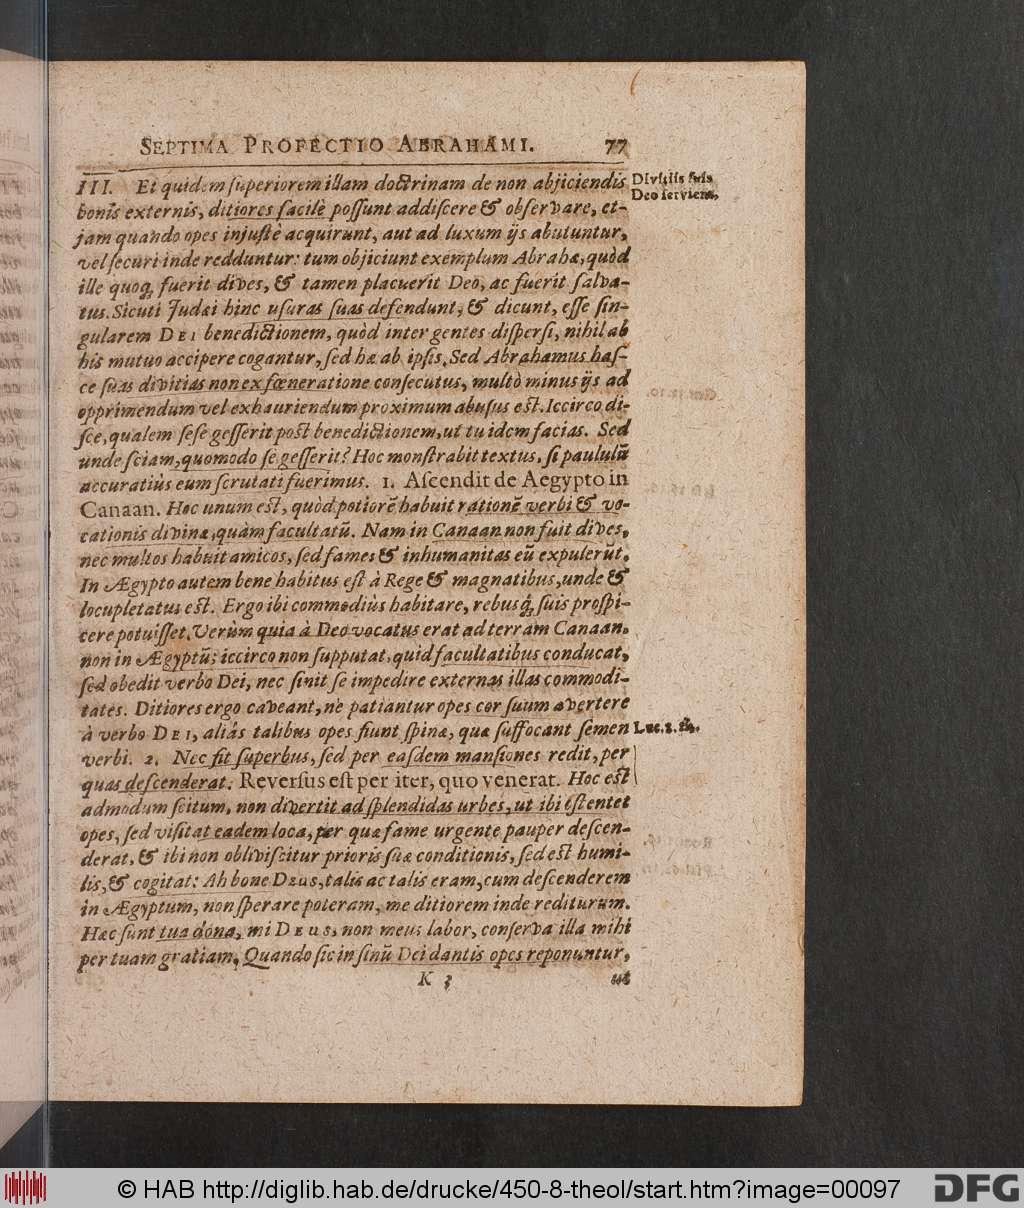 SEPTIMA PROFECTIO ABRAHAMI. 77
III. Et quidem ſuperiorem illam doctrinam de non abjiciendis
Divitiis ſuis
bonis externis, ditiores facilè poſſunt addiſcere & obſervare, et-
Deo ſerviens,
jam quando opes injuſtè acquirunt, aut ad luxum ijs abutuntur,
vel ſecuri inde redduntur: tum objiciunt exemplum Abrahæ, quòd
ille quoq; fuerit dives, & tamen placuerit Deo, ac fuerit ſalva-
tus. Sicuti Judæi hinc uſuras ſuas defendunt, & dicunt, eſſe ſin-
gularem DEI benedictionem, quòd inter gentes diſperſi, nihil ab
his mutuo accipere cogantur, ſed hæ ab ipſis. Sed Abrahamus haſ-
ce ſuas divitias non ex fœneratione conſecutus, multò minus ijs ad
opprimendum vel exhauriendum proximum abuſus eſt. Iccirco di-
ſce, qualem ſeſe geſſerit poſt benedictionem, ut tu idem facias. Sed
unde ſciam, quomodo ſe geſſerit? Hoc monſtrabit textus, ſi paululũ
accuratiùs eum ſcrutati fuerimus. 1. Aſcendit de Aegypto in
Canaan. Hoc unum eſt, quòd potiorẽ habuit rationẽ verbi & vo-
cationis divinæ, quàm facultatũ. Nam in Canaan non fuit dives,
nec multos habuit amicos, ſed fames & inhumanitas eũ expulerũt.
In Ægypto autem bene habitus eſt à Rege & magnatibus, unde &
locupletatus eſt. Ergo ibi commodiùs habitare, rebusq; ſuis proſpi-
cere potuiſſet. Verùm quia à Deo vocatus erat ad terram Canaan,
non in Ægyptũ; iccirco non ſupputat, quid facultatibus conducat,
ſed obedit verbo Dei, nec ſinit ſe impedire externas illas commodi-
tates. Ditiores ergo caveant, nè patiantur opes cor ſuum avertere
à verbo DEI, aliàs talibus opes fiunt ſpinæ, quæ ſuffocant ſemen
Luc. 8. 14.
verbi. 2. Nec fit ſuperbus, ſed per eaſdem manſiones redit, per
quas deſcenderat. Reverſus eſt per iter, quo venerat. Hoc eſt
admodum ſcitum, non divertit ad ſplendidas urbes, ut ibi oſtentet
opes, ſed viſitat eadem loca, per quæ fame urgente pauper deſcen-
derat, & ibi non obliviſcitur prioris ſuæ conditionis, ſed eſt humi-
lis, & cogitat: Ah bone DEUS, talis ac talis eram, cum deſcenderem
in Ægyptum, non ſperare poteram, me ditiorem inde rediturum.
Hæc ſunt tua dona, mi DEUS, non meus labor, conſerva illa mihi
per tuam gratiam. Quando ſic in ſinũ Dei dantis opes reponuntur,
K 3 ut
© HAB http://diglib.hab.de/drucke/450-8-theol/start.htm?image=00097
DFG